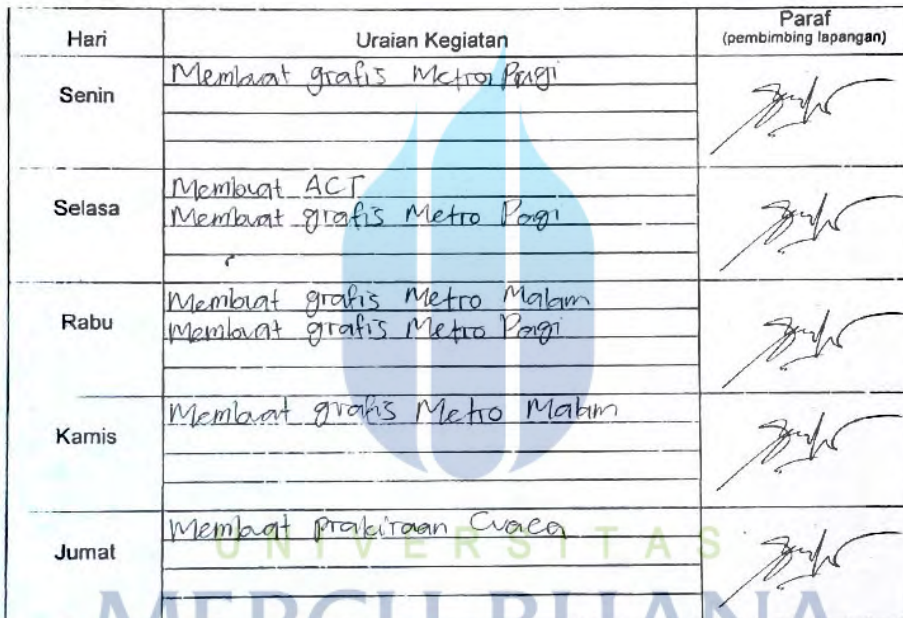 Hari Uraian Kegiatan Paraf
(pembimbing lapangan)
Senin
Membuat grafis Metro Pagi
Selasa
Membuat ACT
Membuat grafis Metro Pagi
Rabu
Membuat grafis Metro Malam
Membuat grafis Metro Pagi
Kamis
Membuat grafis Metro Malam
Jumat
Membuat prakiraan Cuaca
UNIVERSITAS
MERCU BUANA